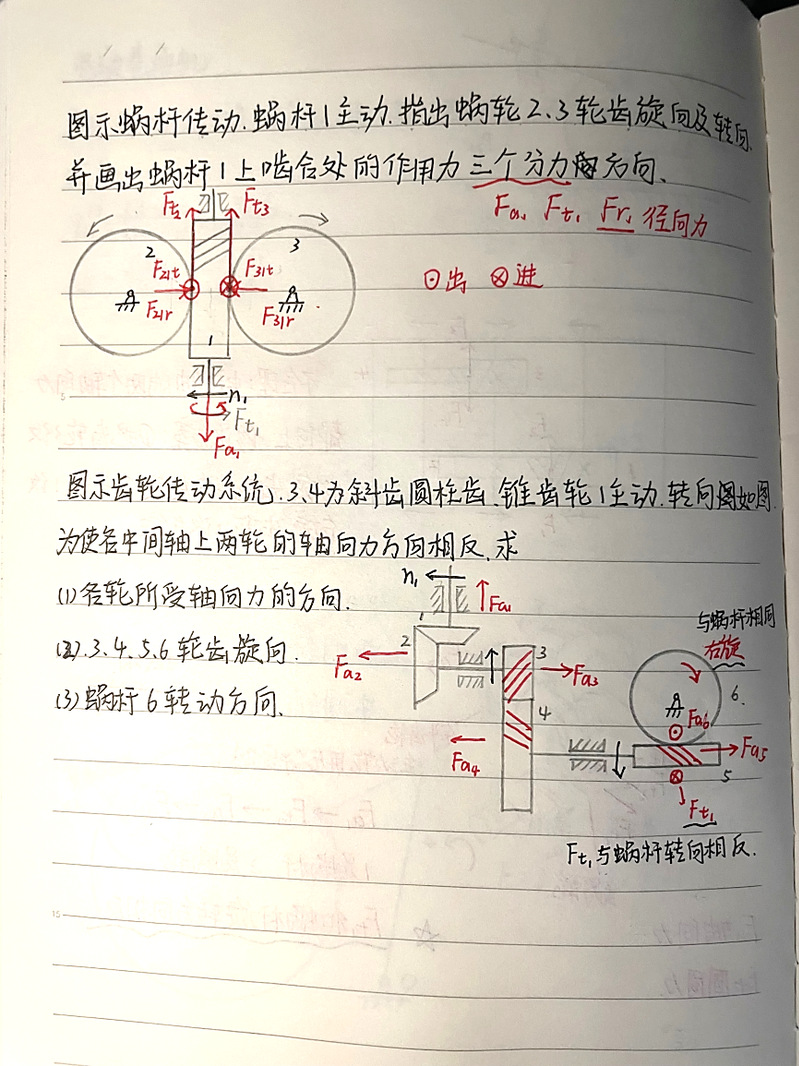 图示蜗杆传动.蜗杆1主动.指出蜗轮2.3轮齿旋向及转向.
并画出蜗杆1上啮合处的作用力三个分力的方向.
Fa₁ Ft₁ Fr₁ 径向力
Ft₂ Ft₃
2 3
F21t F31t
F21r F31r
⊙出 ⊗进
1
n₁
Ft₁
Fa₁
图示齿轮传动系统,3.4为斜齿圆柱齿.锥齿轮1主动.转向如图.
为使各中间轴上两轮的轴向力方向相反,求
(1)各轮所受轴向力的方向.
(2).3.4.5.6轮齿旋向.
(3)蜗杆6转动方向.
n₁
Fa₁
1
2
Fa₂
3
Fa₃
4
Fa₄
与蜗杆相同
右旋
6.
Fa₆
Fa₅
5
Ft₁
Ft₁与蜗杆转向相反.
5
15